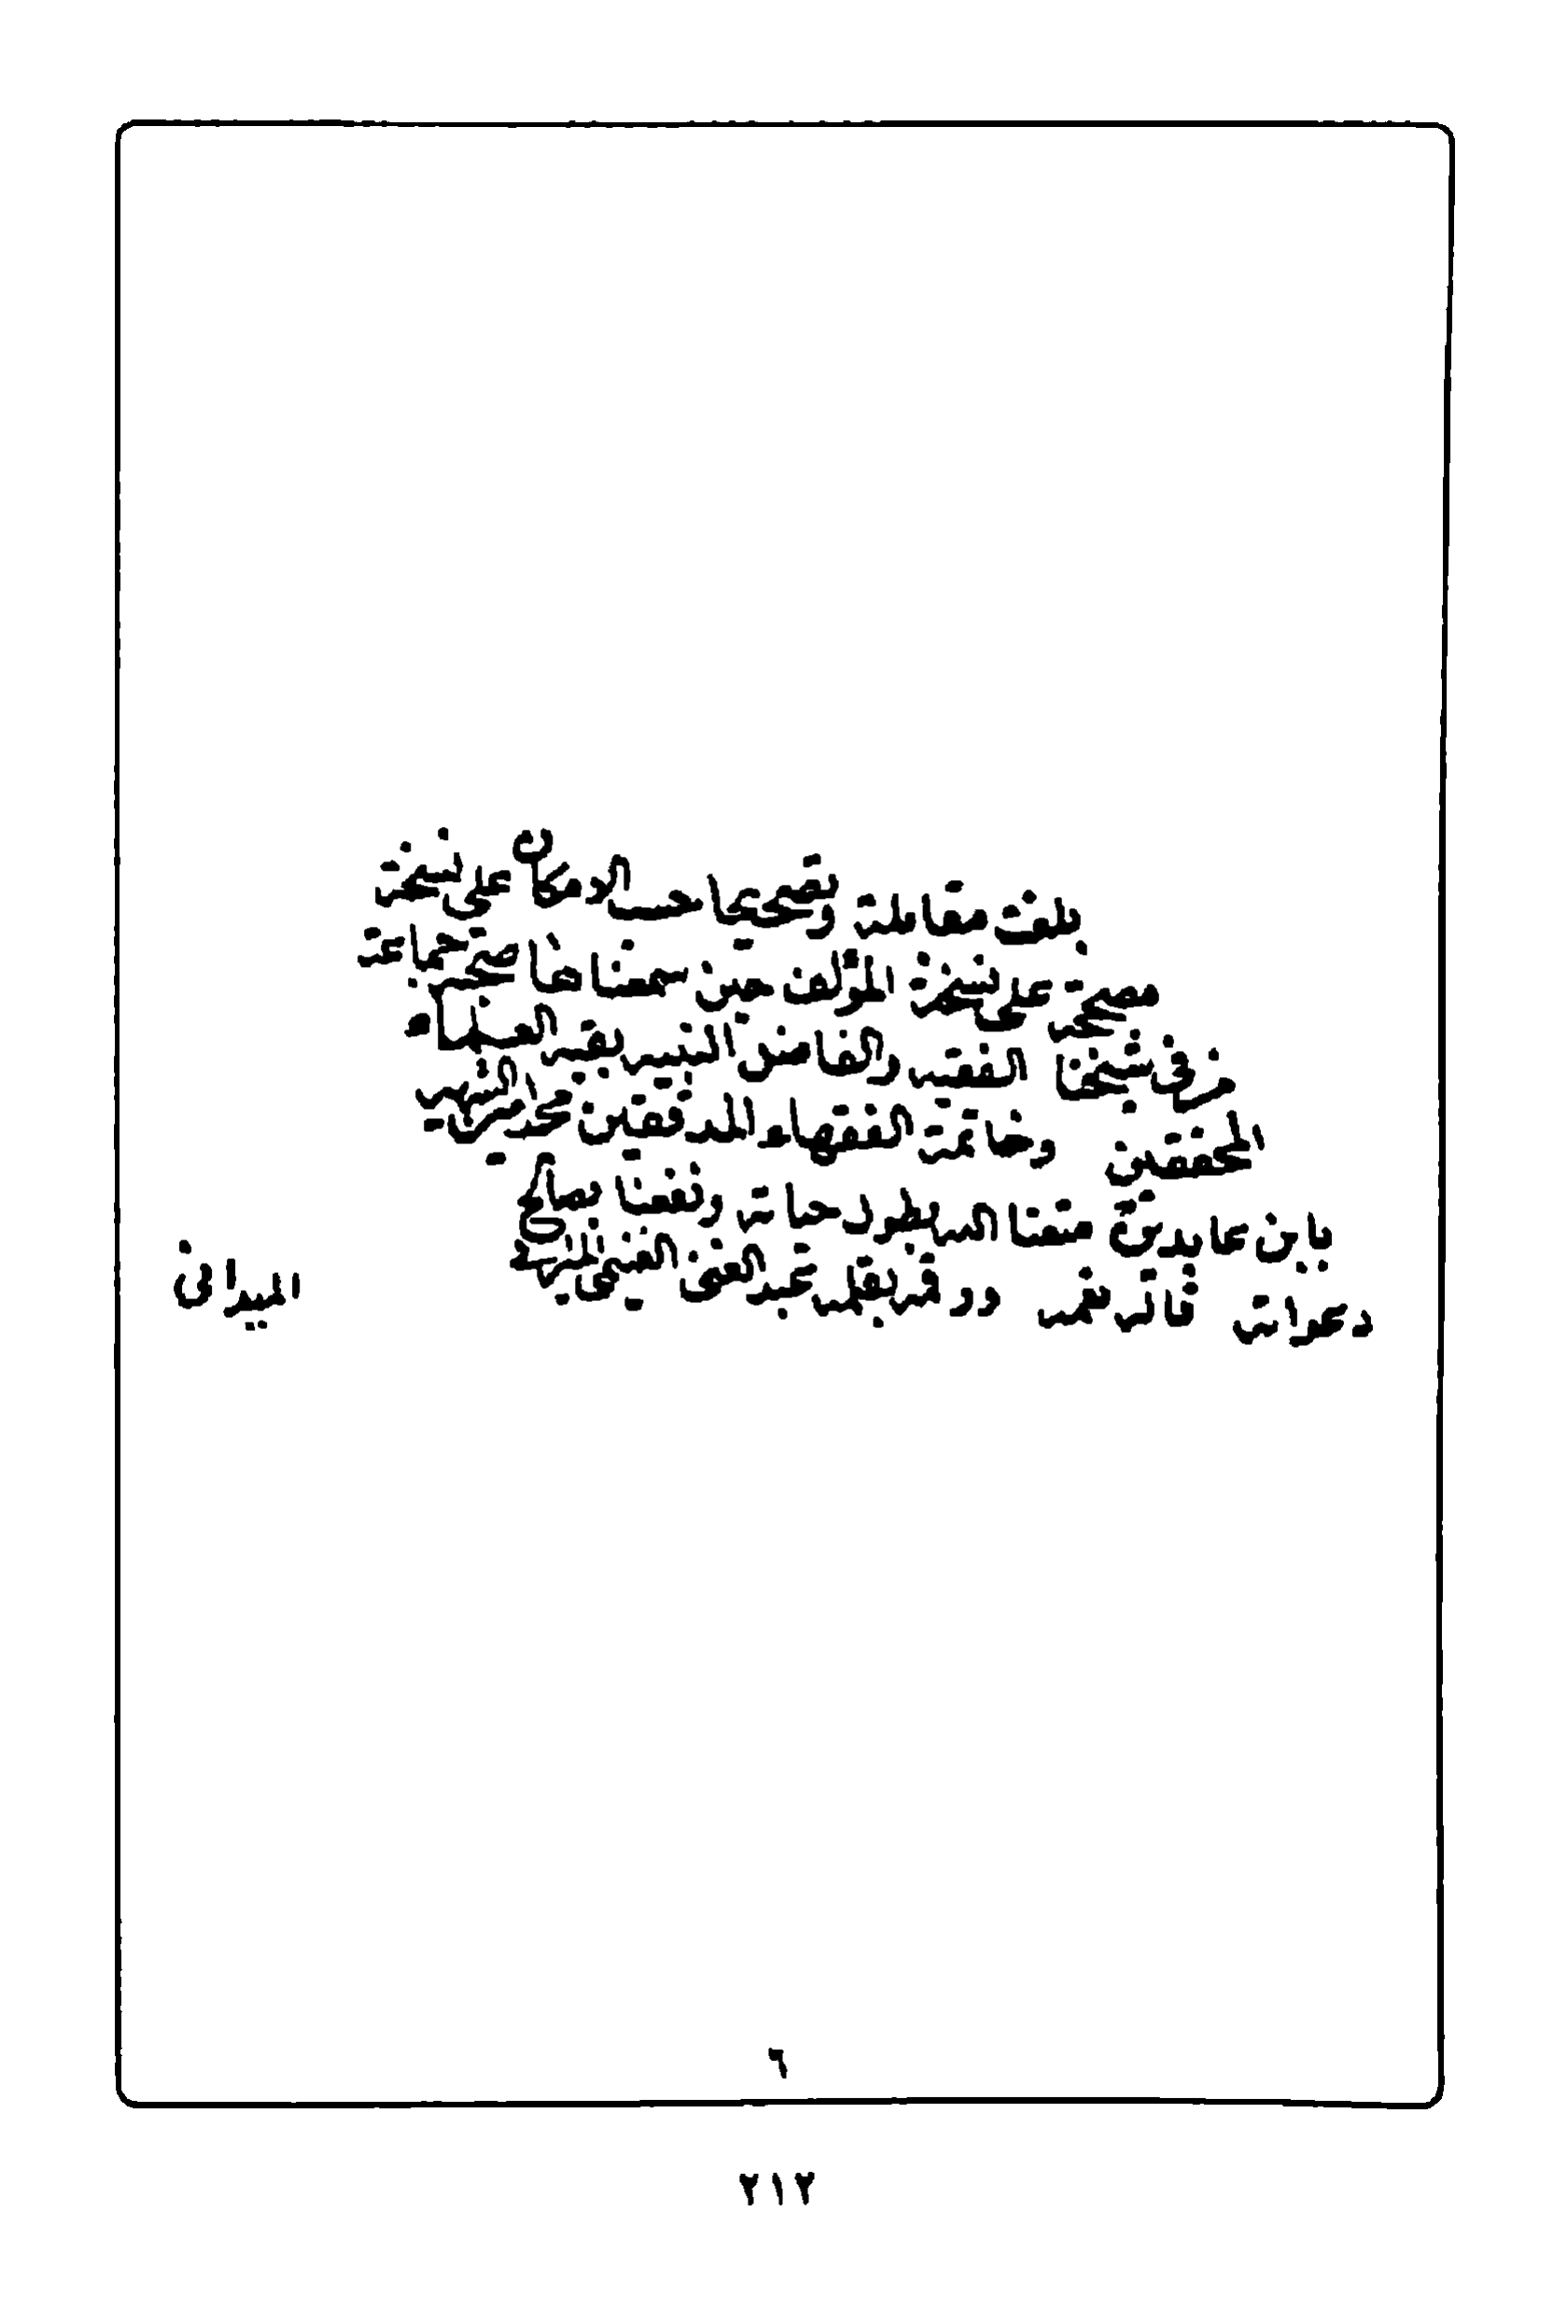 بلغت مقابلة وتصحيحا حسب الامكان على نسخة
مصححة على نسخة المؤلف حين سمعناها صحبة جماعة
من في شيخنا الفقيه والفاضل النبيه بقية العظماء
المحققين وخاتمة الفقهاء المدققين محمد امين الشهير
بابن عابدين متعنا الله بطول حياته ونفعنا بصالح
دعواته قاله بفمه ورقمه بقلمه عبد الغني الغنيمي الشهير
الميداني
٦
٢١٢